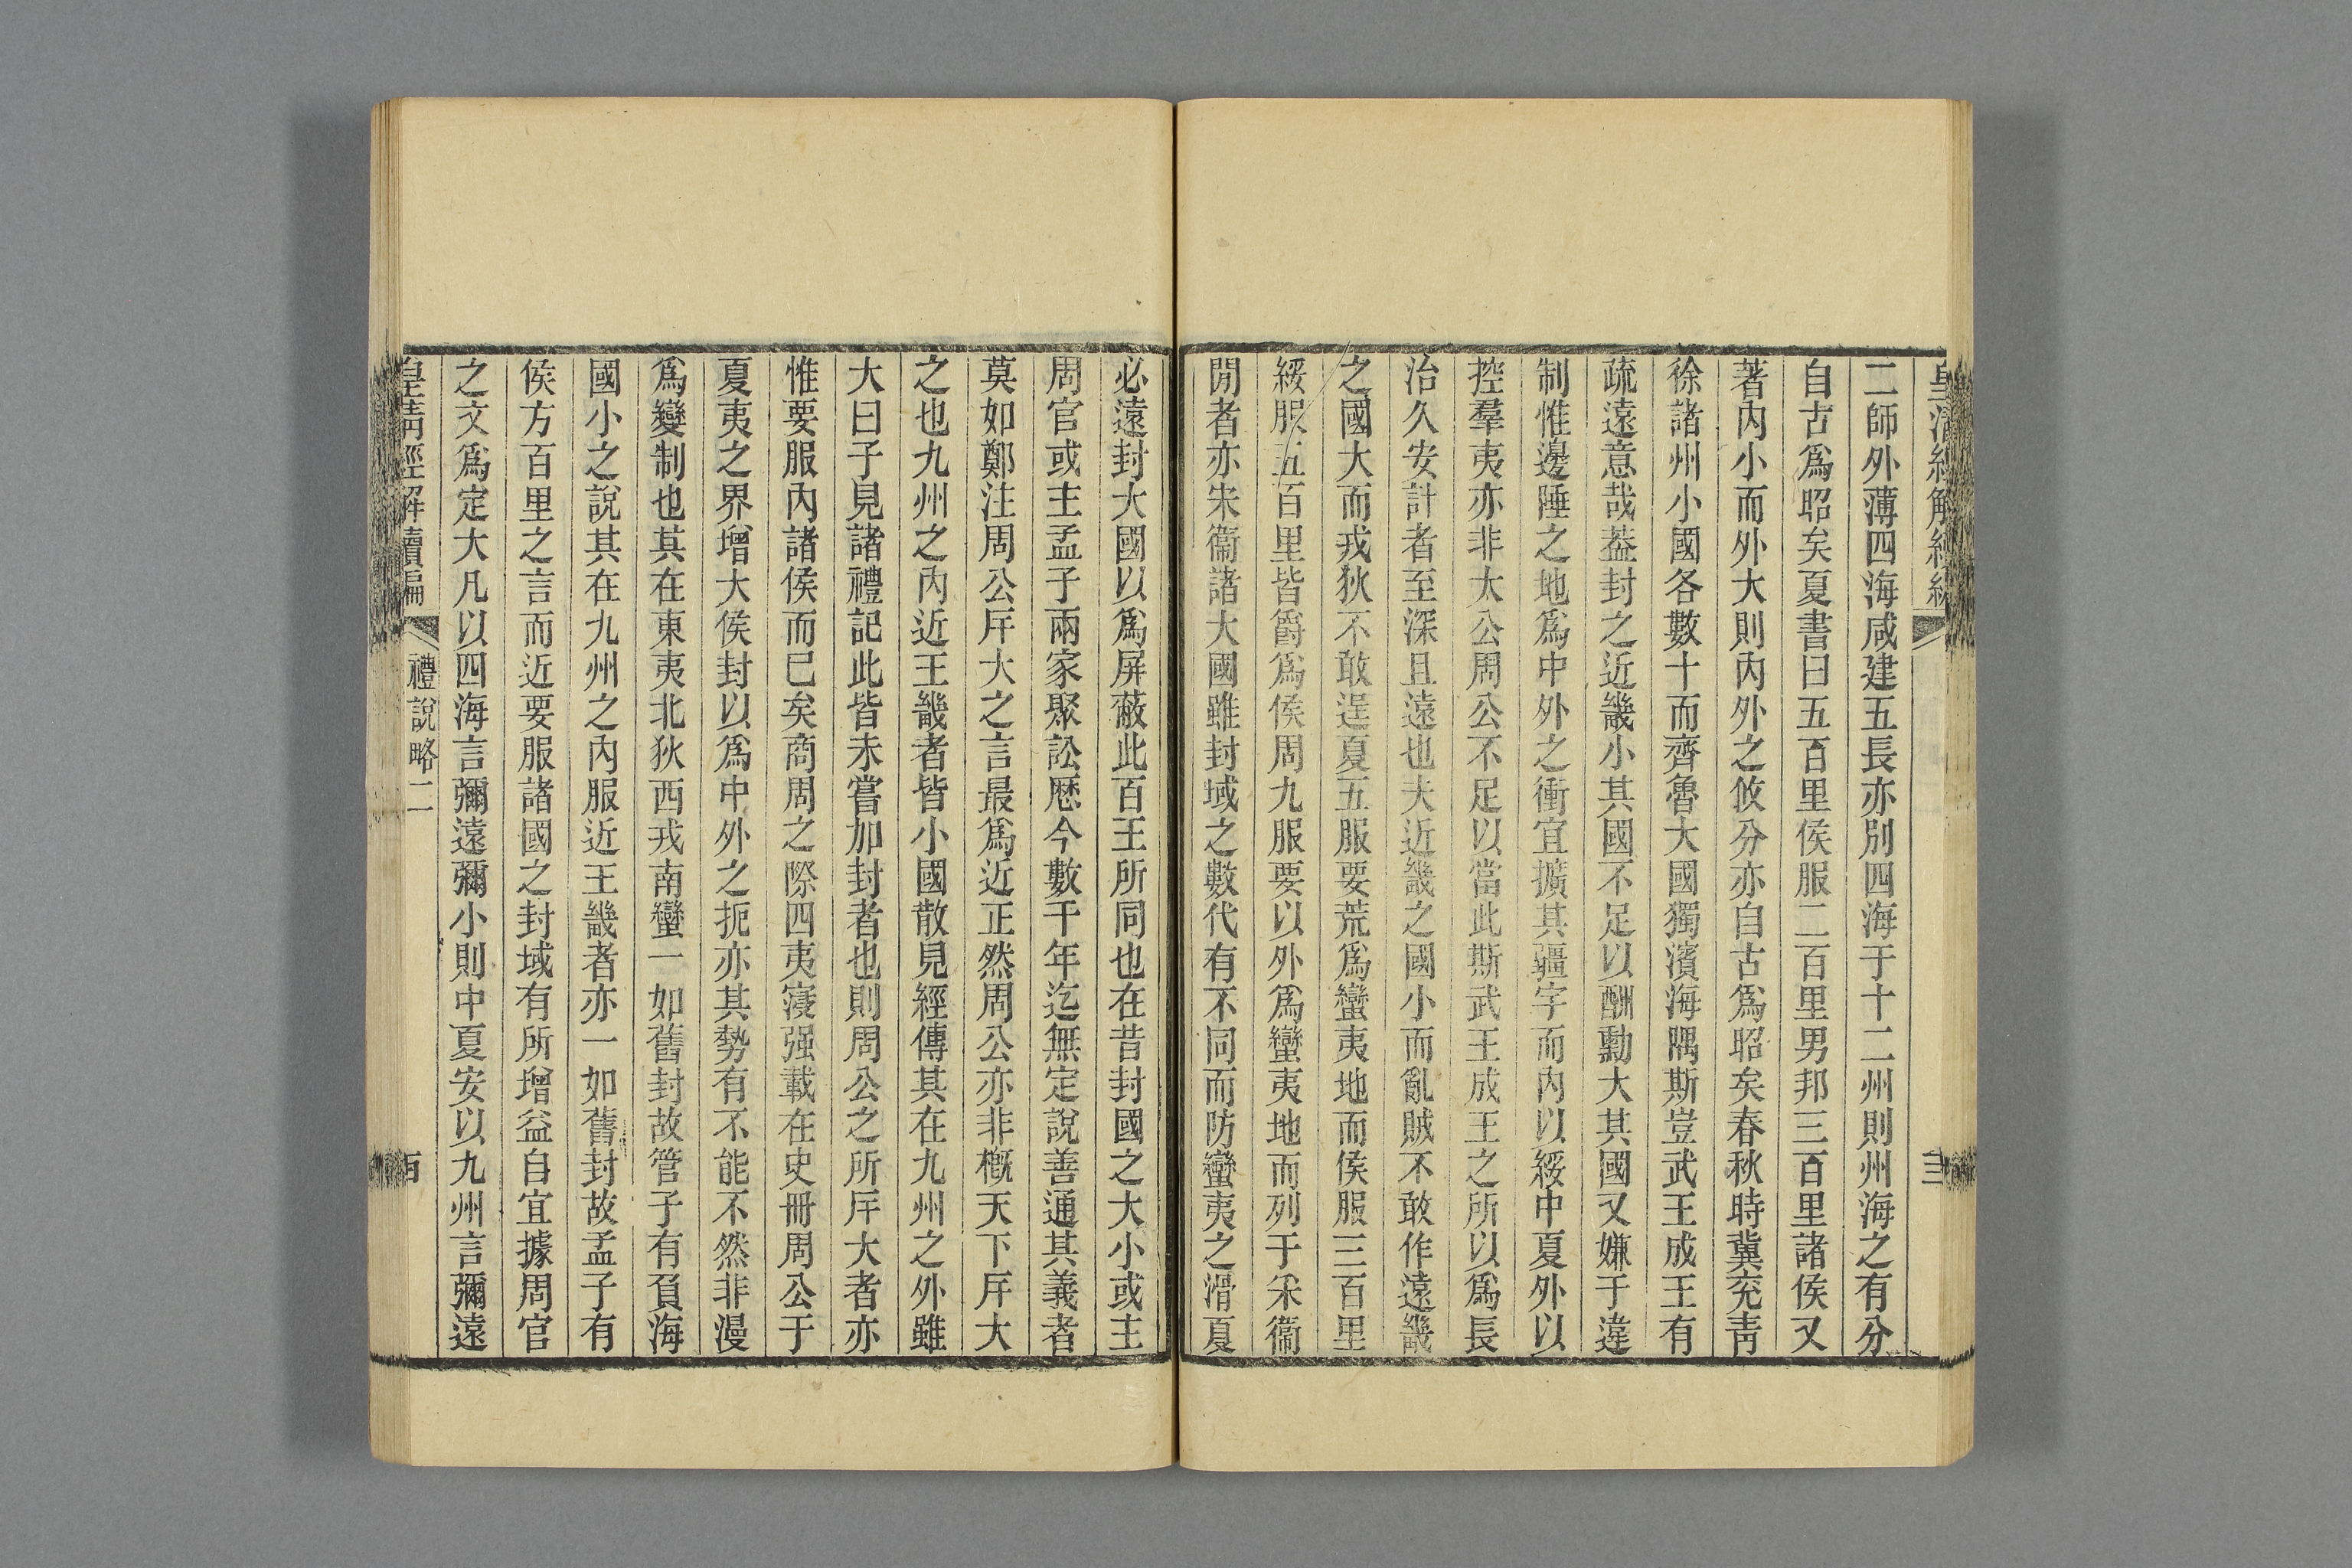 皇清經解續編
三
二師外薄四海咸建五長亦別四海于十二州則州海之有分
自古爲昭矣夏書曰五百里侯服二百里男邦三百里諸侯又
著內小而外大則內外之攸分亦自古爲昭矣春秋時冀兖靑
徐諸州小國各數十而齊魯大國獨濱海隅斯豈武王成王有
疏遠意哉葢封之近畿小其國不足以酬勳大其國又嫌于違
制惟邊陲之地爲中外之衝宜擴其疆宇而內以綏中夏外以
控羣夷亦非太公周公不足以當此斯武王成王之所以爲長
治久安計者至深且遠也夫近畿之國小而亂賊不敢作遠畿
之國大而戎狄不敢逞夏五服要荒爲蠻夷地而侯服三百里
綏服五百里皆爵爲侯周九服要以外爲蠻夷地而列于采衞
閒者亦宋衞諸大國雖封域之數代有不同而防蠻夷之滑夏
必遠封大國以爲屏蔽此百王所同也在昔封國之大小或主
周官或主孟子兩家聚訟厯今數千年迄無定說善通其義者
莫如鄭注周公斥大之言最爲近正然周公亦非槪天下斥大
之也九州之內近王畿者皆小國散見經傳其在九州之外雖
大曰子見諸禮記此皆未嘗加封者也則周公之所斥大者亦
惟要服內諸侯而巳矣商周之際四夷寖强載在史冊周公于
夏夷之界增大侯封以爲中外之扼亦其勢有不能不然非漫
爲變制也其在東夷北狄西戎南蠻一如舊封故管子有負海
國小之說其在九州之內服近王畿者亦一如舊封故孟子有
侯方百里之言而近要服諸國之封域有所增益自宜據周官
之文爲定大凡以四海言彌遠彌小則中夏安以九州言彌遠
皇淸經解續編
禮說略二